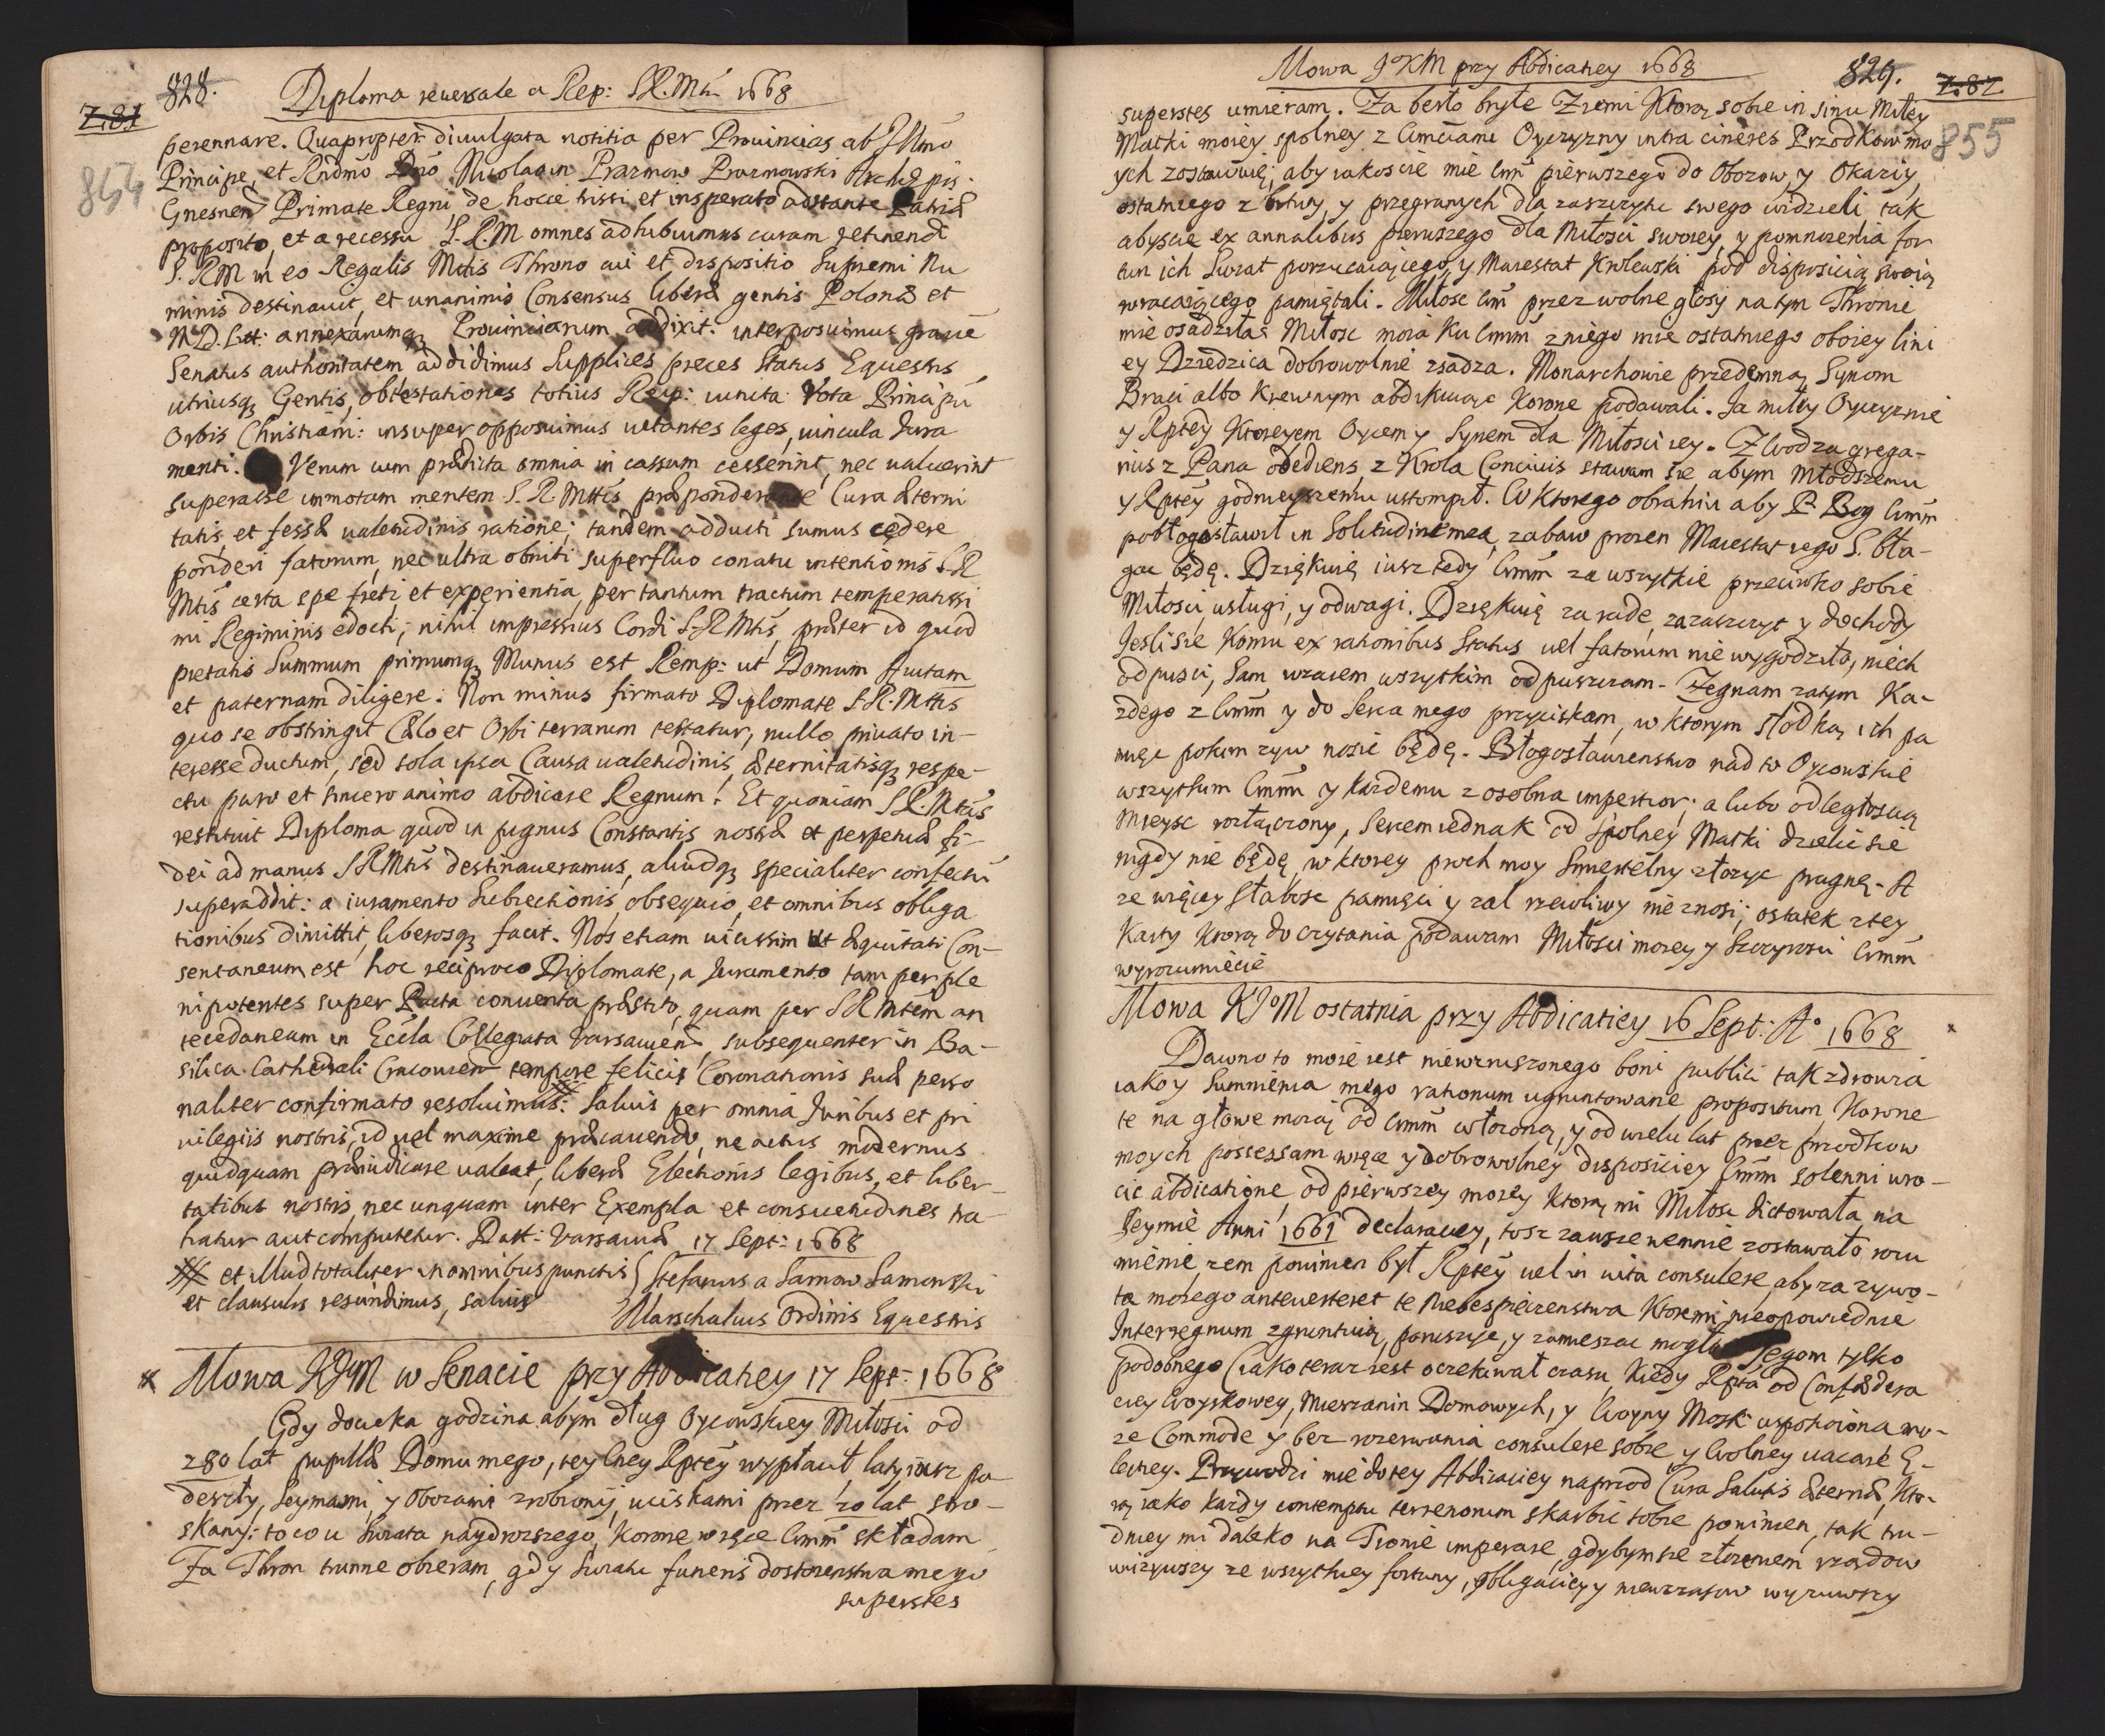 828.
Diploma reuersale a Rep: S.R.Mti 1668
7.81
854
perennare. Quapropter diuulgata notitia per Prouincias ab Illmo
Principe, et Rndmo Dno Nicolao in Prazmow Prazmowski Archiepis:
Gnesnen Primate Regni, de hocce tristi et insperato adstante Patriæ
proposito, et a recessu S.R.M omnes adhibuimus curam retinendi
S.RM in eo Regalis Mttis Throno cui et dispositio Supremi Nu
minis destinauit, et unanimis Consensus liberæ gentis Polonæ et
M.D.Litt: annexarumq₃ Prouinciarum addixit: interposuimus graue
Senatus authoritatem addidimus Supplices preces Status Equestris
utriusq₃ Gentis, obtestationes totius Reip: iuncta Vota Principu
Orbis Christiani: insuper opposuimus uetantes leges, uincula Jura
menti. Verum cum prædicta omnia in cassum cesserint, nec ualuerint
superasse immotam mentem S.R.Mttis præponderante Cura æterni
tatis et fessæ ualetudinis ratione; tandem adducti sumus cedere
ponderi fatorum, nec ultra obniti superfluo conatu intentionis S.R
Mtis certa spe freti et experientia, per tantum tractum temperatissi
mi Regiminis edocti; nihil impressius Cordi S.R.Mtis, præter id quod
pietatis Summum primumq₃ Munus est Remp: ut Domum Auitam
et paternam diligere: Non minus firmato Diplomate S.R.Mttis
quo se obstringit Cælo et Orbi terrarum testatur, nullo priuato in-
teresse ductum, sed sola ipsa Causa ualetudinis, æternitatisq₃ respe-
ctu puro et sincero animo abdicare Regnum: Et quoniam S.R.Mtas
restituit Diploma quod in pignus Constantis nostræ et perpetuæ fi-
dei ad manus SRMtis destinaueramus, aliudq₃ specialiter confectu
superaddit: a iuramento Subiectionis, obsequio, et omnibus obliga
tionibus dimittit, liberosq₃ facit. Nos etiam uicissim ut æquitati Con-
sentaneum est hoc reciproco Diplomate, a Juramento tam per ple
nipotentes super Pacta conuenta præstito, quam per SRMtem an
tecedaneum in Eccla Collegiata Varsauien, subsequenter in Ba-
silica Cathedrali Cracouien tempore felicis Coronationis suæ perso
naliter confirmato resoluimus: Saluis per omnia Juribus et pri
uilegiis nostris, id uel maxime præcauendo, ne actus modernus
quidquam præiudicare ualeat, liberæ Electionis legibus, et liber-
tatibus nostris, nec unquam inter Exempla et consuetudines tra-
hatur aut computetur. Datt: Varsauiæ 17 Sept: 1668
et illud totaliter in omnibus punctis
et clausulis rescindimus, saluis
Stefanus a Sarnow Sarnowski
Marschalcus Ordinis Equestris
Mowa KJM w Senacie przy Abdicatiey 17 Sept: 1668
Gdy docieka godzina abym dług Oycowskiey Miłości od
280 lat pupillæ Domu mego, tey Cney Rptey wypłacił laty iusz po
deszły, Seymami, y Obozami zrobiony, uciskami przez 20 lat stro-
skany: to co u Swiata naydrozszego, Korone w ręce Wmm składam
Za Thron trunne obieram, gdy Swiatu funeris dostoienstwa mego
superstes
Mowa JoKM przy Abdicatiey 1668
829.
7.82
855
superstes umieram. Za berło bryłe Ziemi Ktorą sobie in sinu Miłey
Matki moiey spolney z Wmciami Oyczyzny intra cineres Przodkow mo
ych zostawuię, aby iakoscie mie Wm pierwszego do Obozow, y Okaziy
ostatniego z bitwy, y przegranych dla zaszczytu swego widzieli, tak
abyscie ex annalibus pierwszego dla Miłości swoiey, y pomnozenia for
tun ich Swiat porzucaiącego, y Maiestat Krolewski pod disposicią swoią
wracaiącego pamiętali. Miłosc Wm przez wolne głosy na tym Thronie
mie osadziła: Miłosc moia Ku Wmm z niego mie ostatniego oboiey lini
ey Dziedzica dobrowolnie zsadza. Monarchowie przedemną Synom
Braci albo Krewnym abdikuiąc Korone podawali. Ja miłey Oyczyznie
y Rptey Ktoreyem Oycem y Synem dla Miłości iey. Z Wodza grega-
rius z Pana obediens, z Krola Conciuis stawam się, abym Młodszemu
y Rptey godnieyszemu ustompił. W Ktorego obraniu aby P. Bog Wmm
pobłogosławił in Solitudine mea, zabaw prozen Maiestat iego S. bła-
gac będę. Dziękuię iusz tedy Wmm za wszytkie przeciwko sobie
Miłości, usługi, y odwagi. Dziękuię za rade, za zaszczyt y dochody
Jesli sie Komu ex rationibus Status uel fatorum nie wygodziło, niech
odpusci, Sam wzaiem wszytkim odpuszczam. Zegnam zatym Ka-
zdego z Wmm y do Serca mego przyciskam, w Ktorym słodką ich pa
mięc pokim zyw nosic będę. Błogosławienstwo nad to Oycowskie
wszytkim Wmm y Kazdemu z osobna impertior; a lubo odległoscią
Mieysc rozłączony, Sercem iednak od spolney Matki dzielic sie
nigdy nie będę, w ktorey proch moy Smiertelny złozyc pragnę. A
ze więcey słabosc pamięci y zal rzewliwy nie znosi, ostatek z tey
Karty Ktorą do czytania podawam Miłości moiey y Szczyrosci Wmm
wyrozumiecie
Mowa KJoM ostatnia przy Abdicatiey 16 Sept: Ao 1668
Dawno to moie iest niewzruszonego boni publici tak zdrowia
iako y Sumnienia mego rationum ugruntowane propositum, Korone
te na głowe moią od Wmm włozoną, y od wielu lat przez przodkow
moych possessam w ręce y dobrowolney disposiciey Wmm solenni wro-
cic abdicatione, od pierwszey moiey Ktorą mi Miłosc dictowała, na
Seymie Anni 1661 declaraciey, tosz zawsze we mnie zostawało rozu
mienie, zem powinien był Rptey uel in uita consulere, aby za zywo-
ta moiego anteuerteret te Niebespieczenstwa Ktoremi nieopowiednie
Interregnum zgruntuią, poruszyc, y zamieszac mogło. Tegom tylko
podobnego (iako teraz iest oczekiwał czasu, Kiedy Rpta od Confædera
ciey Woyskowey, Mieszanin Domowych, y Woyny Mosk: uspokoiona mo-
ze Commode y bez rozerwania consulere sobie y Wolney uacare E-
lectiey. Przywodzi mie do tey Abdicaciey naprzod Cura Salutis æternæ, Kto-
rą iako Kazdy contemptu terrenorum skarbic sobie powinien, tak tru-
dniey mi daleko na Tronie imperare, gdybym sie złozeniem rządow
wizuwszy ze wszytkiey fortuny, obligaciey y niewczasow wyzuwszy